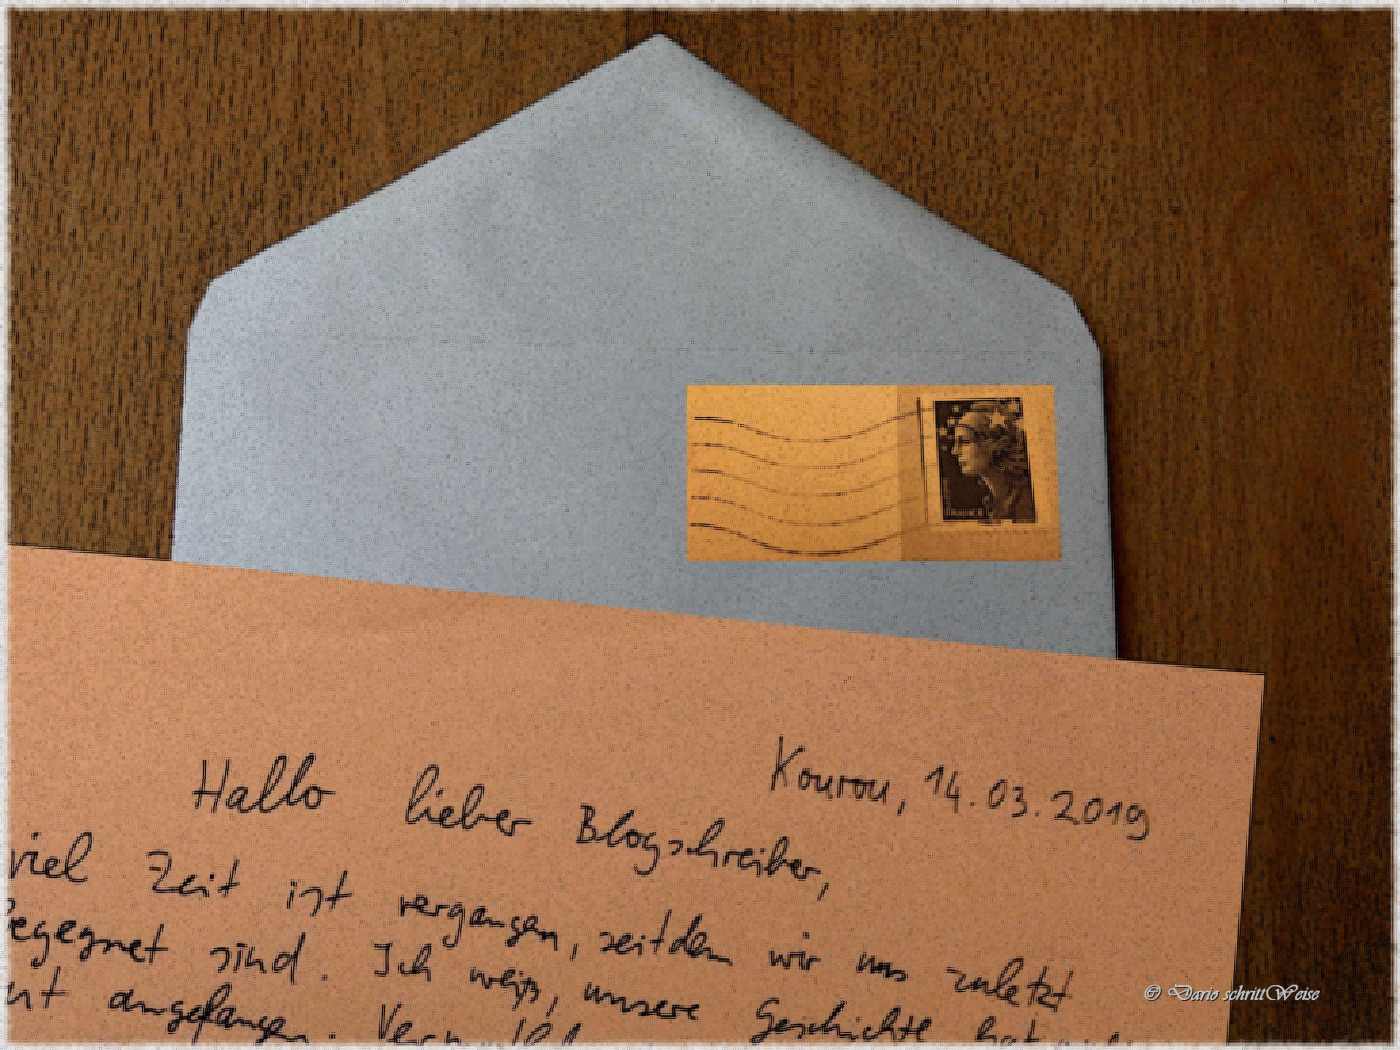 Kourou, 14.03.2019
Hallo lieber Blogschreiber,
viel Zeit ist vergangen, seitdem wir uns zuletzt
begegnet sind. Ich weiß, unsere Geschichte hat
angefangen.
© Dario schrittWeise